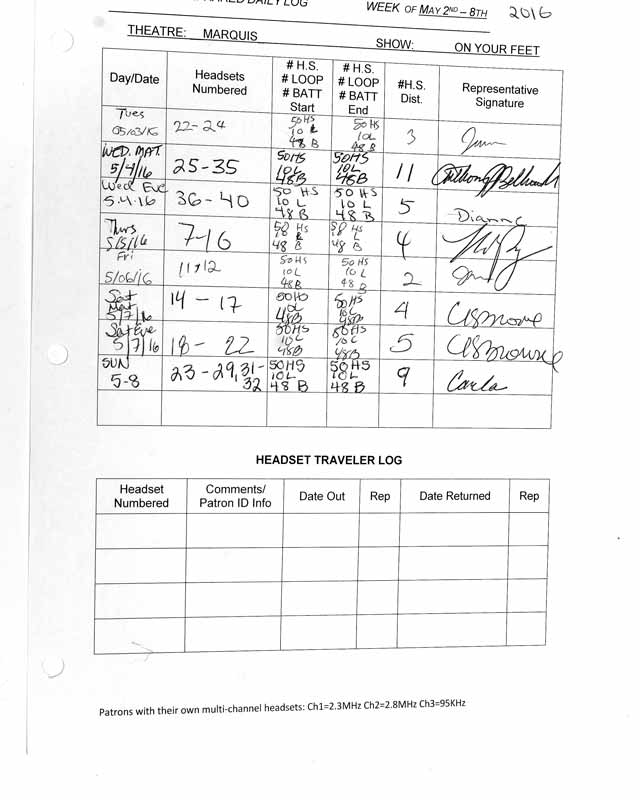 DAILY LOG WEEK OF MAY 2ND – 8TH 2016
THEATRE: MARQUIS SHOW: ON YOUR FEET
Day/Date
Headsets
Numbered
# H.S.
# LOOP
# BATT
Start
# H.S.
# LOOP
# BATT
End
#H.S.
Dist.
Representative
Signature
Tues
05/03/16
22-24
50HS
10 L
48 B
50HS
10L
48B
3
WED. MAT.
5/4/16
25-35
50HS
10L
48B
50HS
10L
48B
11
Wed Eve
5.4.16
36-40
50 HS
10 L
48 B
50 HS
10 L
48 B
5
Dianne
Thurs
5/5/16
7-16
50 HS
10 L
48 B
50 HS
10 L
48 B
4
Fri
5/06/16
11+12
50HS
10L
48B
50HS
10 L
48 B
2
Sat
Mat
5/7/16
14 - 17
50HS
10L
48B
50HS
10L
48B
4
Sat Eve
5/7/16
18 - 22
50HS
10L
48B
50HS
10L
48B
5
SUN
5-8
23-29, 31-
32
50HS
10L
48 B
50HS
10L
48 B
9
Carla
HEADSET TRAVELER LOG
Headset
Numbered
Comments/
Patron ID Info
Date Out
Rep
Date Returned
Rep
Patrons with their own multi-channel headsets: Ch1=2.3MHz Ch2=2.8MHz Ch3=95KHz